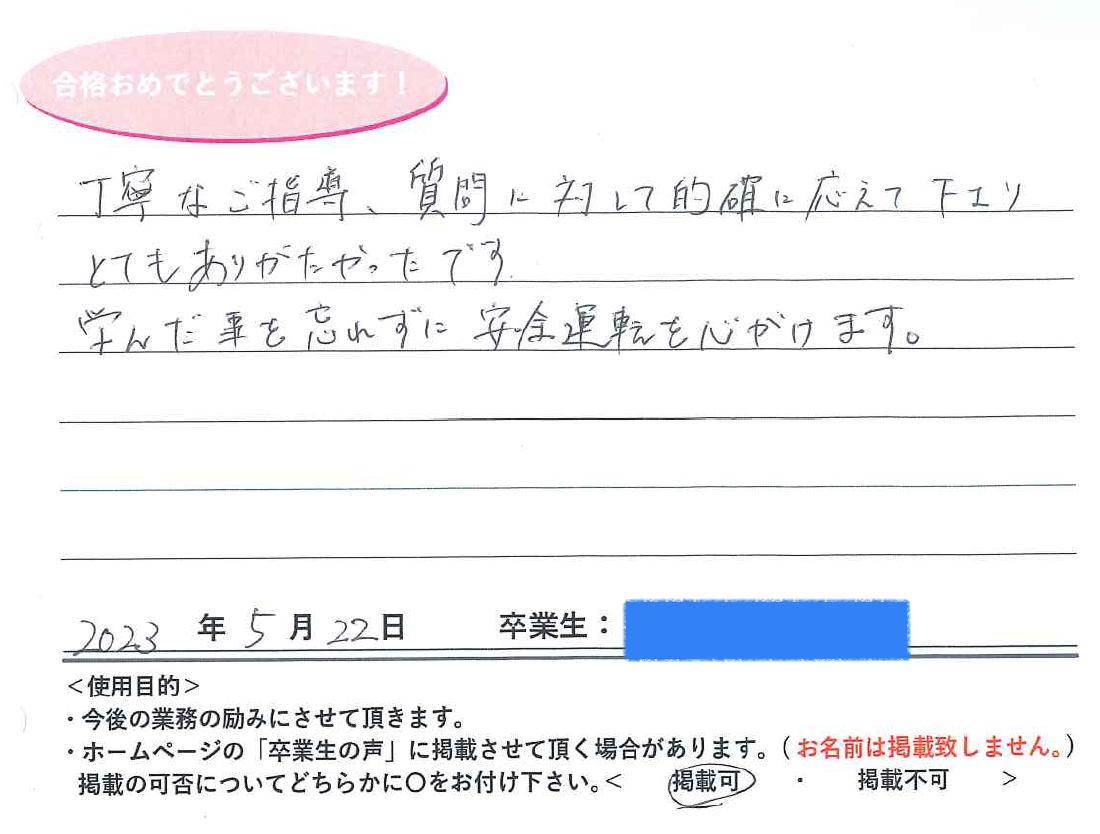 合格おめでとうございます！
丁寧なご指導、質問に対して的確に応えて下さり
とてもありがたかったです
学んだ事を忘れずに安全運転を心がけます。
2023 年 5 月 22 日 卒業生：
＜使用目的＞
・今後の業務の励みにさせて頂きます。
・ホームページの「卒業生の声」に掲載させて頂く場合があります。（お名前は掲載致しません。）
掲載の可否についてどちらかに〇をお付け下さい。＜ 掲載可 ・ 掲載不可 ＞